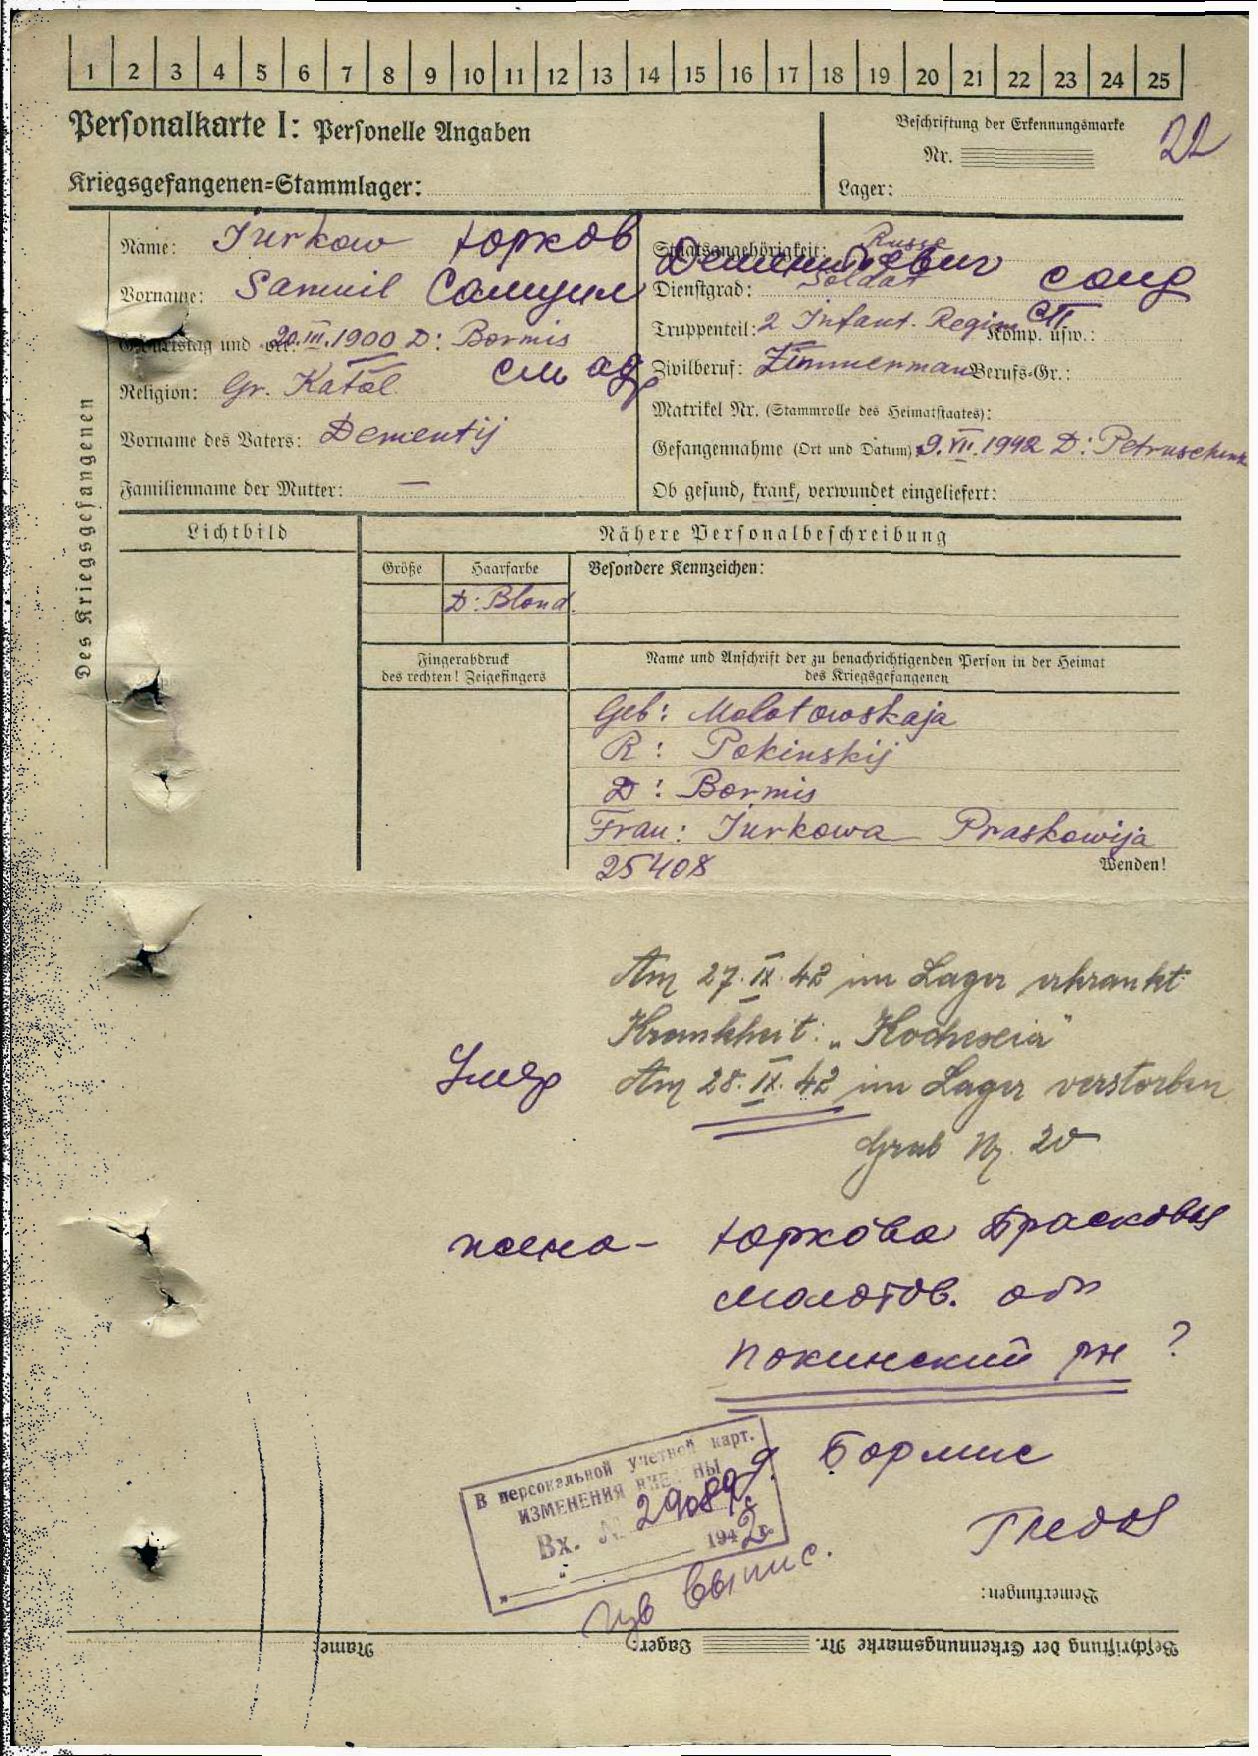 1 2 3 4 5 6 7 8 9 10 11 12 13 14 15 16 17 18 19 20 21 22 23 24 25
Personalkarte I: Personelle Angaben
Beschriftung der Erkennungsmarke
22
Nr.
Kriegsgefangenen=Stammlager:
Lager:
Des Kriegsgefangenen
Name: Jurkow Юрков
Vorname: Samuil Самуил
Geburtstag und Ort: 20.III.1900 D: Bormis
см
Religion: Gr. Katol
Vorname des Vaters: Dementij
Familienname der Mutter: —
Staatsangehörigkeit: Russe
Дементьевич
Dienstgrad: Soldat солд
Truppenteil: 2 Infant. Regim Komp. usw.: СП
Zivilberuf: Zimmerman Berufs=Gr.:
Matrikel Nr. (Stammrolle des Heimatstaates):
Gefangennahme (Ort und Datum) 9.VII.1942 D: Petruschink
Ob gesund, krank, verwundet eingeliefert:
Lichtbild
Nähere Personalbeschreibung
Größe
Haarfarbe
Besondere Kennzeichen:
D: Blond.
Fingerabdruck
des rechten! Zeigefingers
Name und Anschrift der zu benachrichtigenden Person in der Heimat
des Kriegsgefangenen
Geb: Molotowskaja
R: Pokinskij
D: Bormis
Frau: Jurkowa Praskowija
25408
Wenden!
Am 27.IX.42 im Lager erkrankt
Krankheit: „Kochexia"
Умер
Am 28.IX.42 im Lager verstorben
Grab Nr. 20
жена- Юркова Прасковья
Молотов. обл
Покинский рн ?
д. Бормис
В персональной учетной карт.
ИЗМЕНЕНИЯ ВНЕ НЫ
Вх. № 29089
194 2г.
выпис.
Bemerkungen:
Beschriftung der Erkennungsmarke Nr.
Lager:
Name: